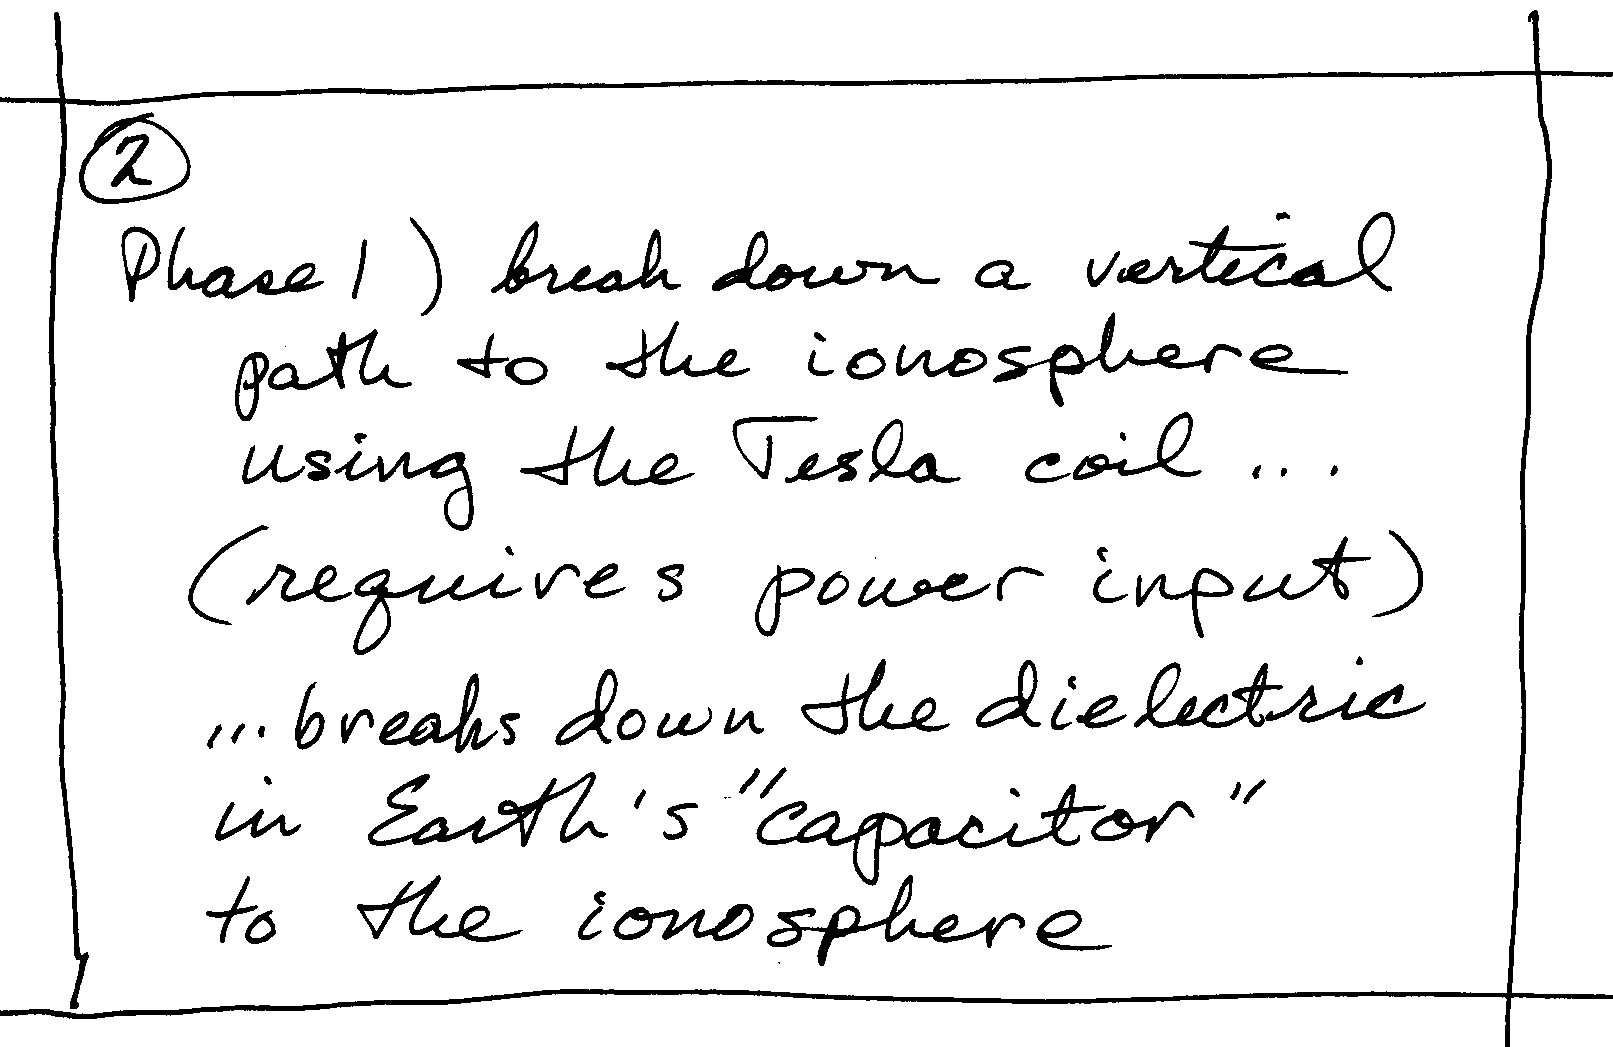 2
Phase 1) break down a vertical
path to the ionosphere
using the Tesla coil ...
(requires power input)
... breaks down the dielectric
in Earth's "capacitor"
to the ionosphere